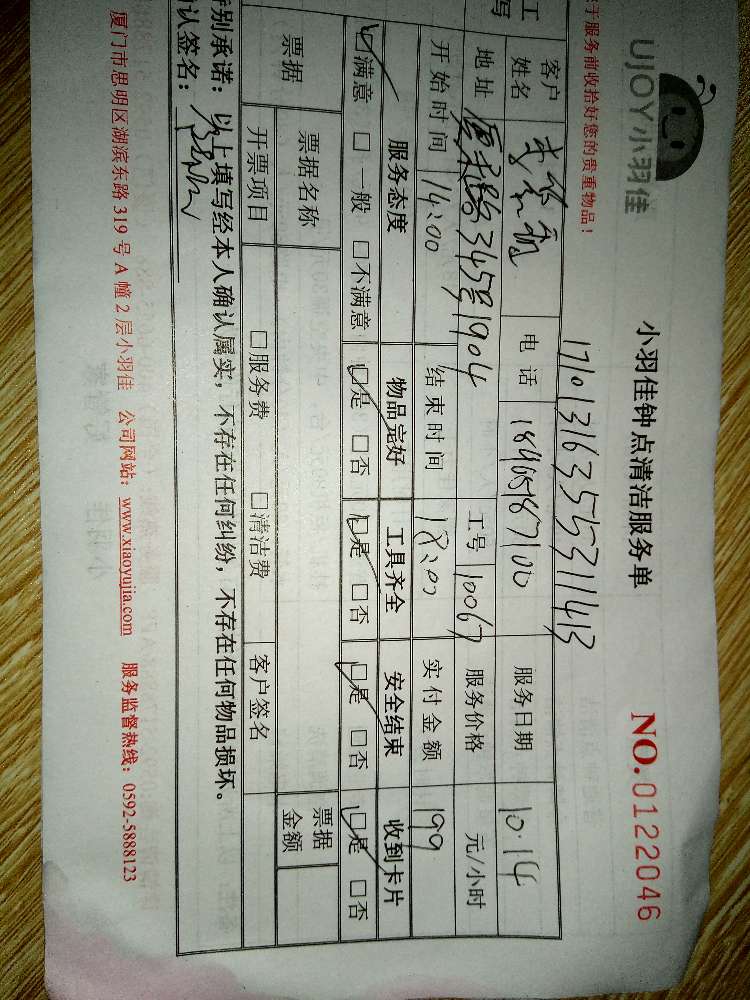 UJOY小羽佳
小羽佳钟点清洁服务单
NO.0122046
于服务前收拾好您的贵重物品！
171013163555311413
工 客户姓名 电话 18465187100 服务日期 10.14
写 地址 345号1904 工号 10067 服务价格 元/小时
开始时间 14:00 结束时间 18:00 实付金额 199
服务态度 物品完好 工具齐全 安全结束 收到卡片
☑满意 □一般 □不满意 ☑是 □否 ☑是 □否 ☑是 □否 ☑是 □否
票据 票据名称 票据金额
开票项目 □服务费 □清洁费 客户签名
特别承诺：以上填写经本人确认属实，不存在任何纠纷，不存在任何物品损坏。
认签名：
厦门市思明区湖滨东路 319 号 A 幢 2 层小羽佳 公司网站：www.xiaoyujia.com 服务监督热线：0592-5888123